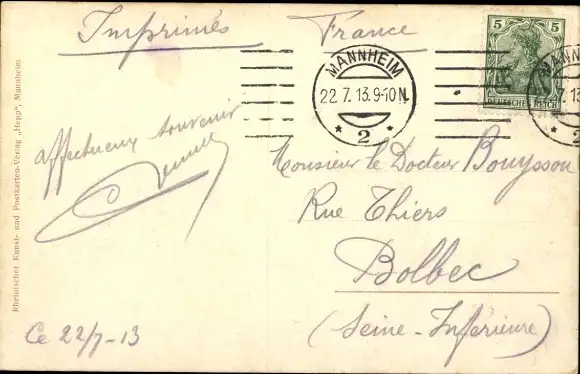 Imprimés France
5 5
DEUTSCHES REICH
MANNHEIM
22.7.13.9-10N.
* 2 *
MANN
7.13
affectueux souvenir
Monsieur le Docteur Bouysson
Rue Thiers
Bolbec
(Seine-Inférieure)
Ce 22/7-13
Rheinischer Kunst- und Postkarten-Verlag „Hepp", Mannheim